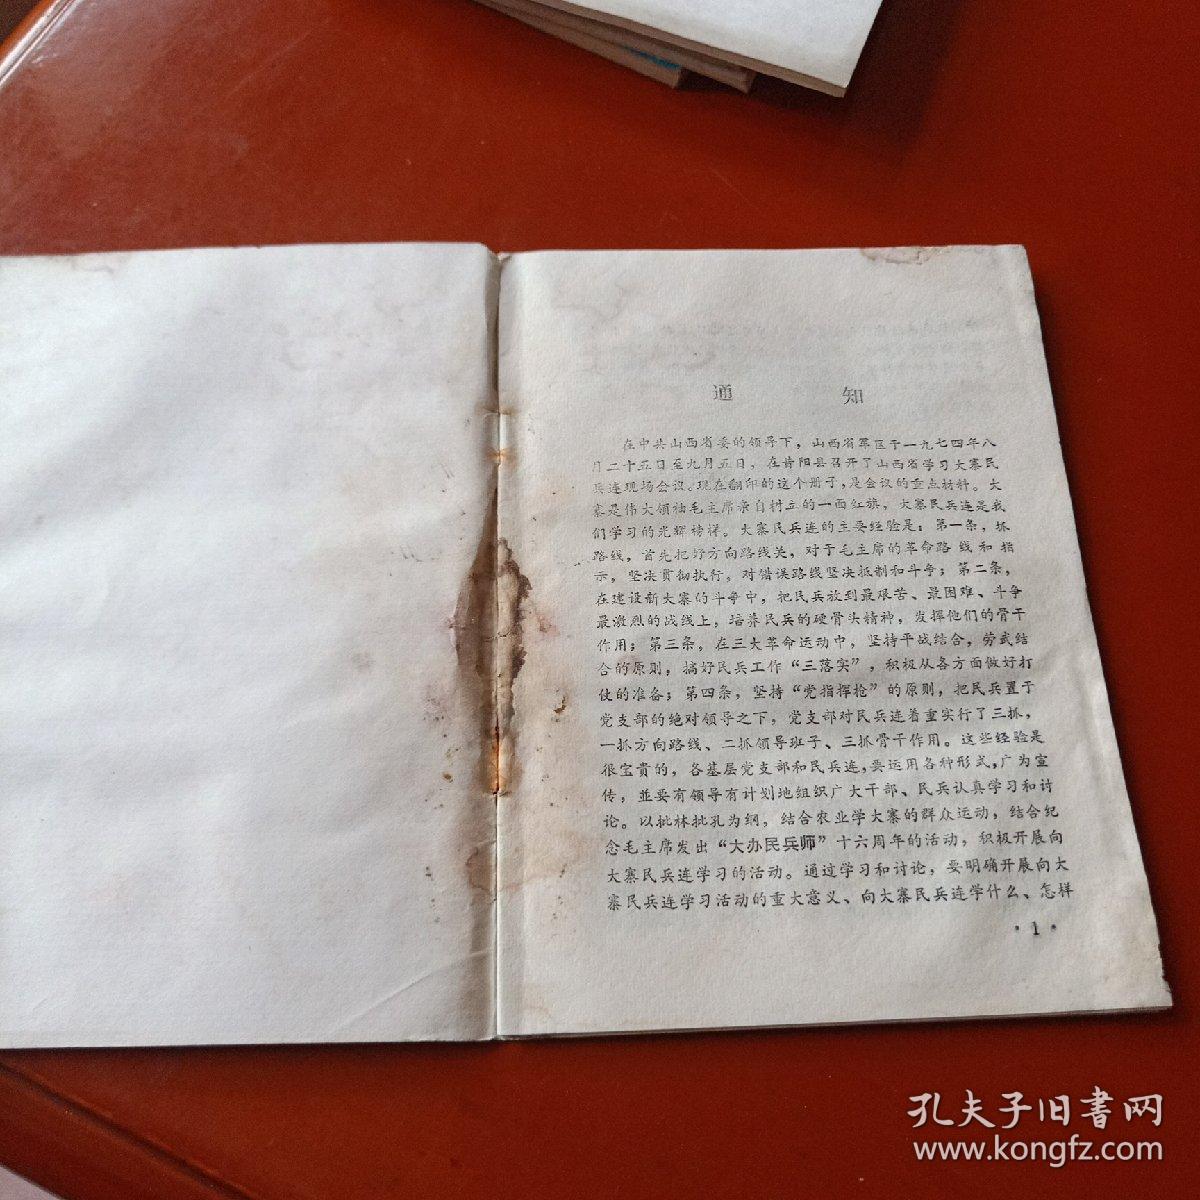 通 知
在中共山西省委的领导下，山西省军区于一九七四年八
月二十五日至九月五日，在昔阳县召开了山西省学习大寨民
兵连现场会议。现在翻印的这个册子，是会议的重点材料。大
寨是伟大领袖毛主席亲自树立的一面红旗，大寨民兵连是我
们学习的光辉榜样。大寨民兵连的主要经验是：第一条，抓
路线，首先把好方向路线关，对于毛主席的革命路线和指
示，坚决贯彻执行，对错误路线坚决抵制和斗争；第二条，
在建设新大寨的斗争中，把民兵放到最艰苦、最困难、斗争
最激烈的战线上，培养民兵的硬骨头精神，发挥他们的骨干
作用；第三条，在三大革命运动中，坚持平战结合，劳武结
合的原则，搞好民兵工作“三落实”，积极从各方面做好打
仗的准备；第四条，坚持“党指挥枪”的原则，把民兵置于
党支部的绝对领导之下，党支部对民兵连着重实行了三抓，
一抓方向路线、二抓领导班子、三抓骨干作用。这些经验是
很宝贵的，各基层党支部和民兵连，要运用各种形式，广为宣
传，並要有领导有计划地组织广大干部、民兵认真学习和讨
论。以批林批孔为纲，结合农业学大寨的群众运动，结合纪
念毛主席发出“大办民兵师”十六周年的活动，积极开展向
大寨民兵连学习的活动。通过学习和讨论，要明确开展向大
寨民兵连学习活动的重大意义、向大寨民兵连学什么、怎样
·1·
孔夫子旧书网
www.kongfz.com